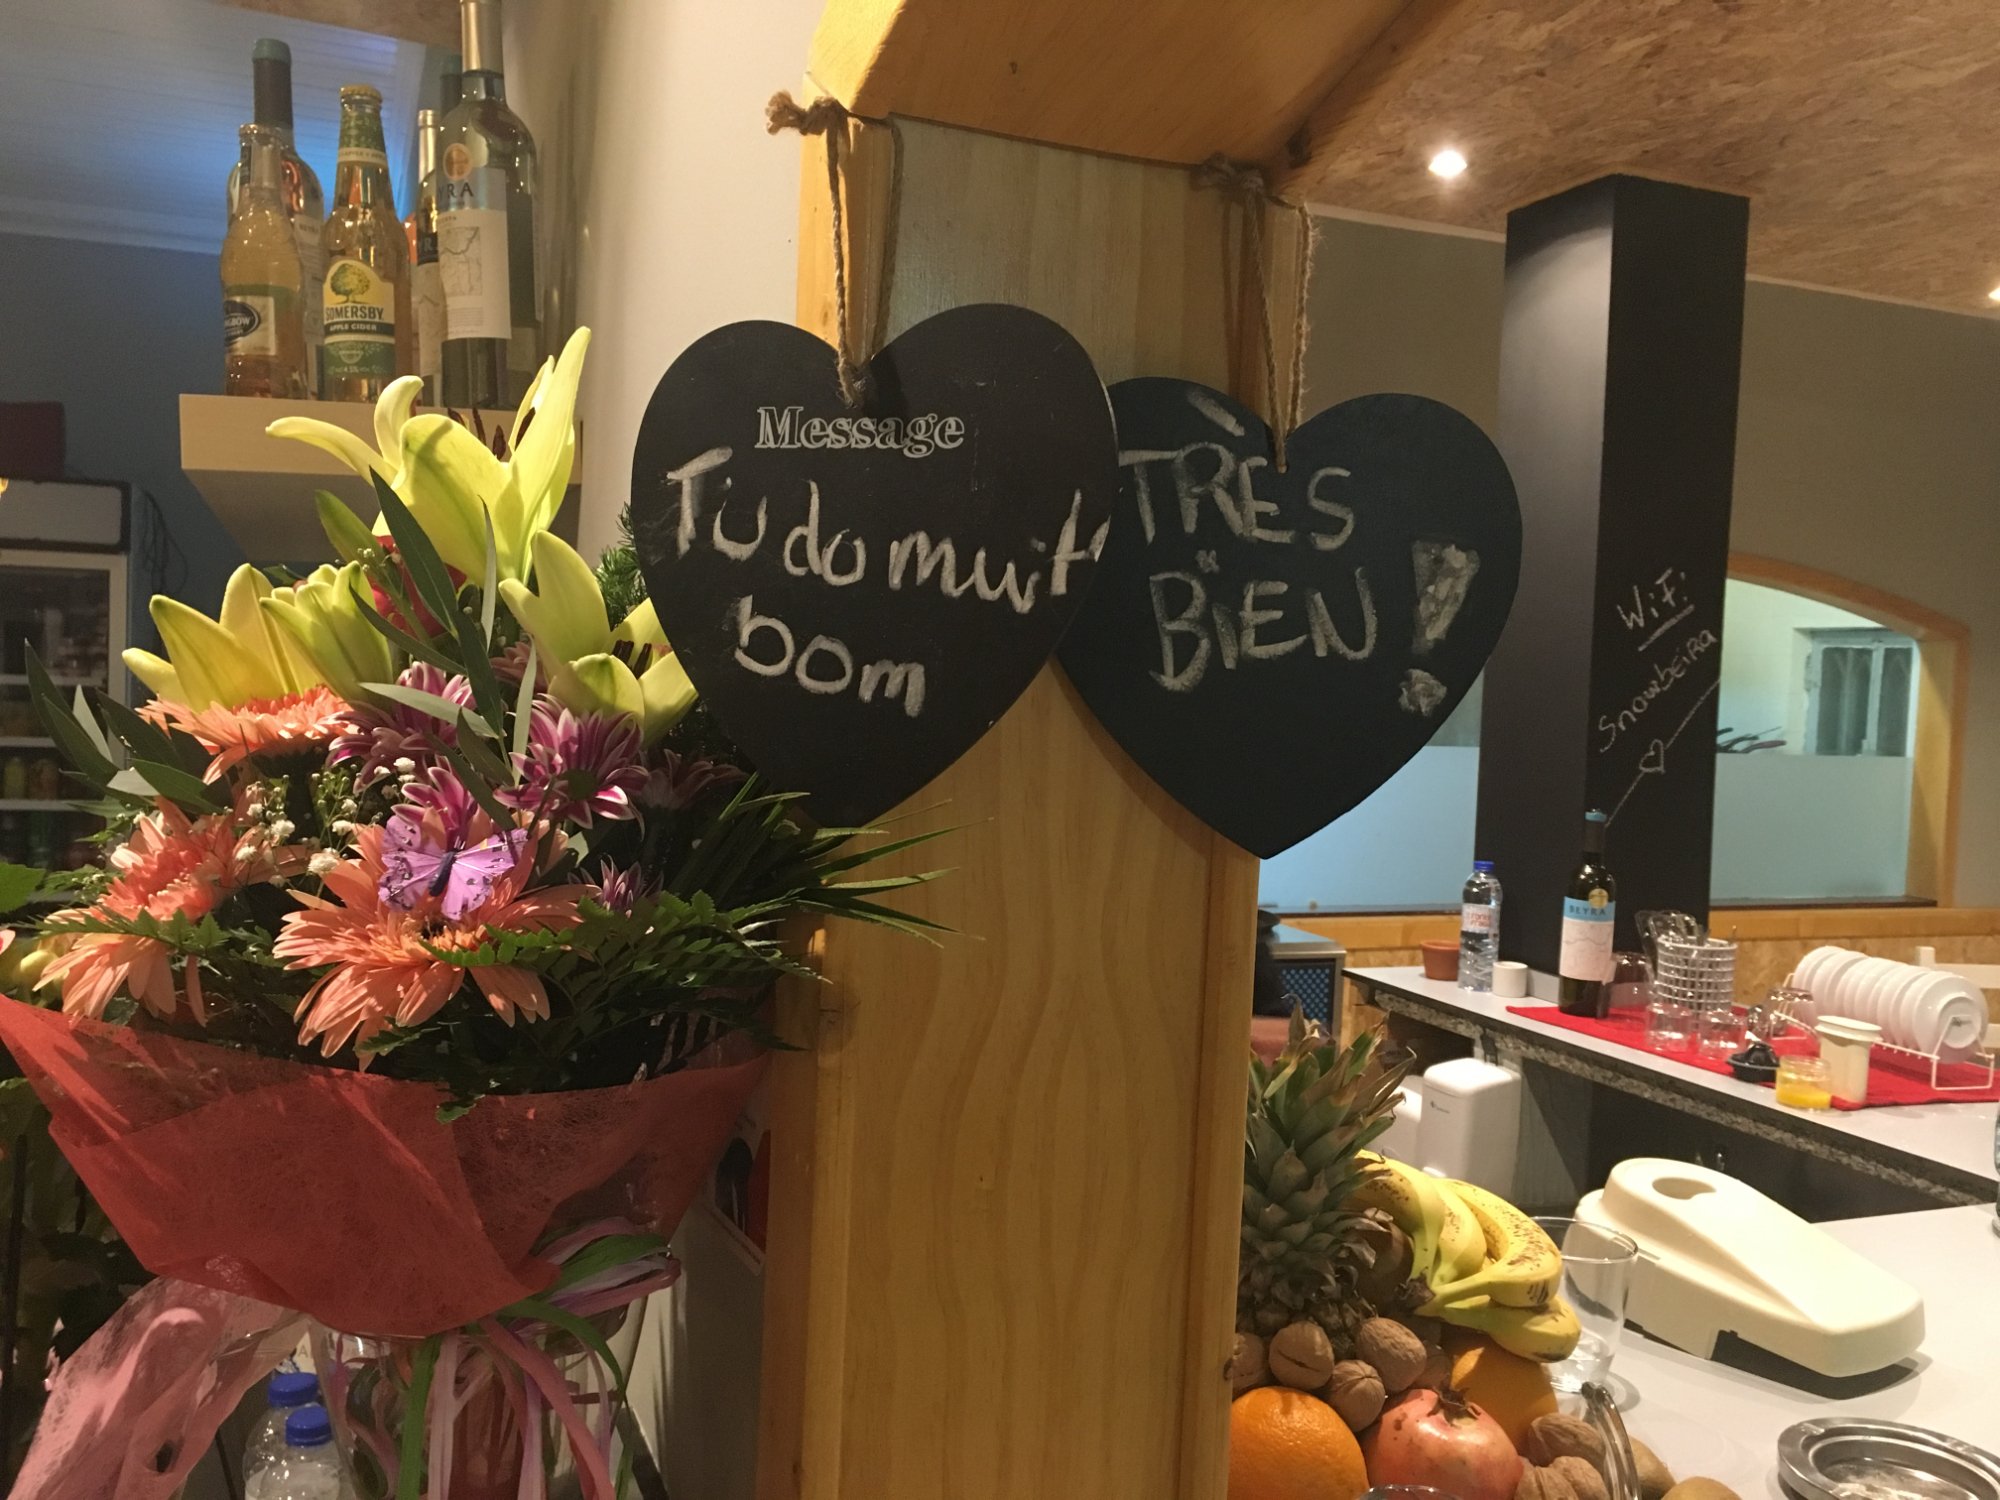 Message
Tudo muito
bom
TRÈS
BiEN !
WiFi
Snowbeira
SOMERSBY
APPLE CIDER
BEYRA